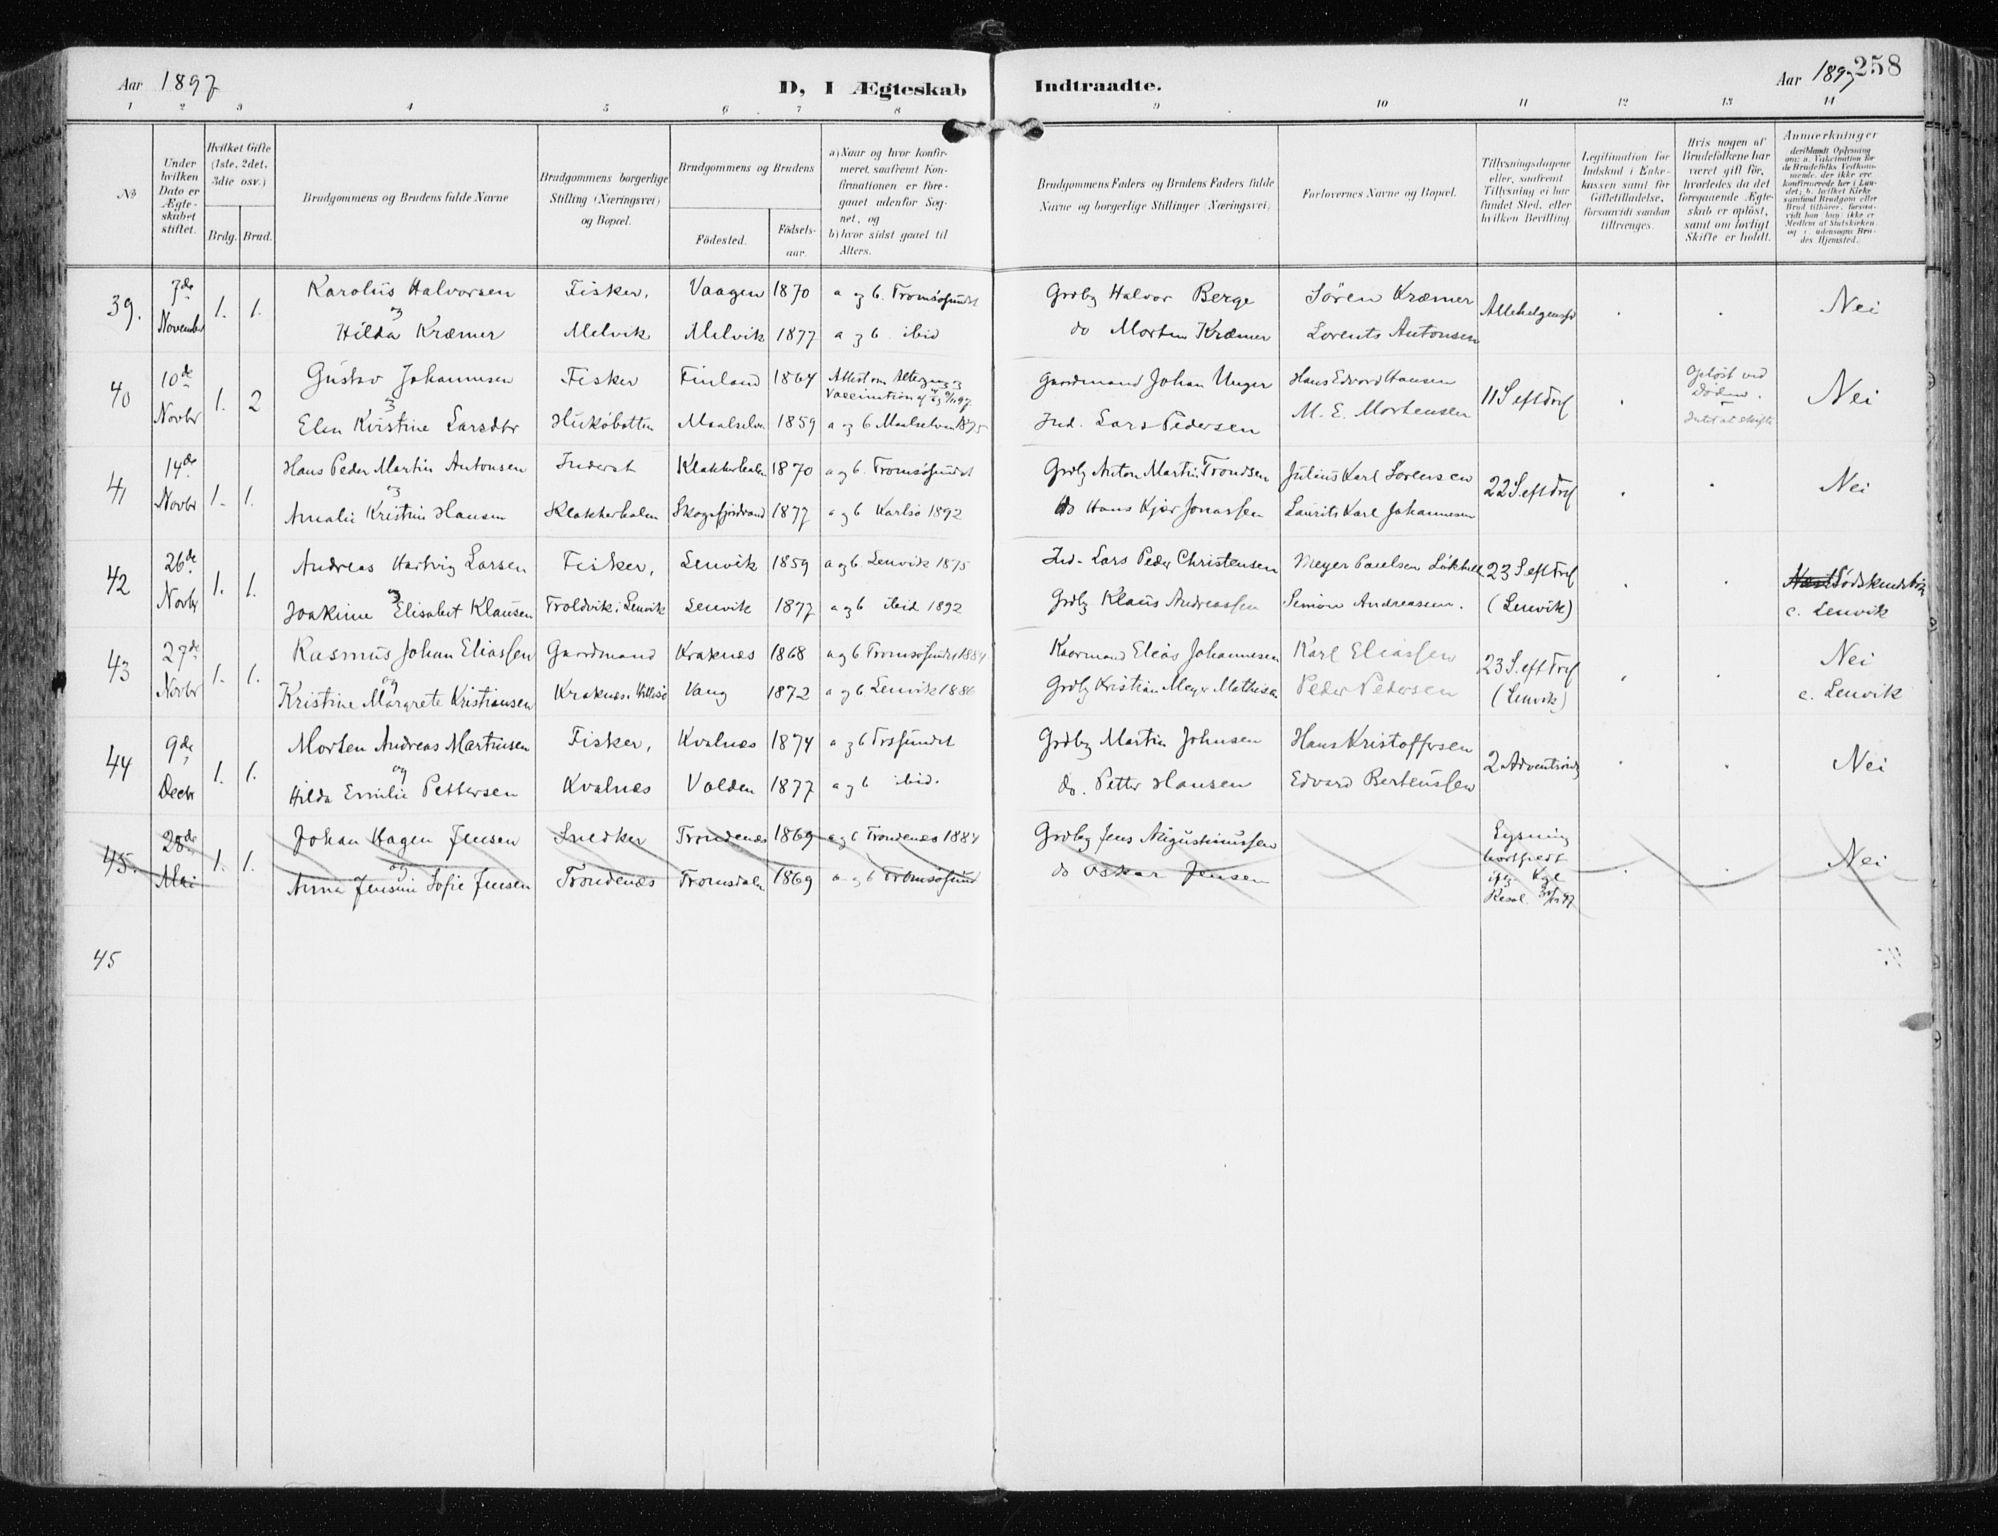 Aar 1897
D, I Ægteskab Indtraadte.
Aar 1897
258
1 2 3 4 5 6 7 8 9 10 11 12 13 14
No
Under hvilken Dato er Ægteskabet stiftet.
Hvilket Gifte (1ste, 2det, 3die osv.)
Brdg. Brud.
Brudgommens og Brudens fulde Navne
Brudgommens borgerlige Stilling (Næringsvei) og Bopæl.
Brudgommens og Brudens
Födested.
Födselsaar.
a) Naar og hvor konfirmeret, saafremt Konfirmationen er foregaaet udenfor Sognet, og
b) hvor sidst gaaet til Alters.
Brudgommens Faders og Brudens Faders fulde Navne og borgerlige Stillinger (Næringsvei)
Forlovernes Navne og Bopæl.
Tillysningsdagene eller, saafremt Tillysning ei har fundet Sted, efter hvilken Bevilling
Legitimation for Indskud i Enkekassen samt for Giftetilladelse, forsaavidt saadan tiltrænges.
Hvis nogen af Brudefolkene har været gift för, hvorledes da det foregaaende Ægteskab er oplöst, samt om lovligt Skifte er holdt.
Anmerkninger
39. 7de Novembr 1. 1. Karolius Halvorsen Fisker, Vaagen 1870 a og b. Tromsøsundet Grdbg Halvor Berge Sören Kræmer Allehelgensd . . Nei
og
Hilda Kræmer Melvik Melvik 1877 a og b ibid do Morten Kræmer Lorents Antonsen
40 10de Novbr 1. 2 Gustav Johannesen Fisker Finland 1864 Attest om Altergang og Vaccination af Gaardmand Johan Unger Hans Edvard Hansen 11 S eft Tref . Oplöst ved Döden. Nei
og
Elen Kristine Larsdtr Maalselv 1859 a og b Maalselven 1875 Ind. Lars Pedersen M. E. Mortensen Intet at skifte
41 14de Novbr 1. 1. Hans Peder Martin Antonsen Inderst 1870 a og b. Tromsøsundet Grdbg Anton Martin Trondsen Julius Karl Sørensen 22 S eft Tref . . Nei
og
Amalie Kristine Hansen 1877 a og b Karlsø 1892 do Hans Kjær Jonassen Laurits Karl Johannesen
42 26de Novbr 1. 1. Andreas Hartvig Larsen Fisker, Lenvik 1859 a og b. Lenvik 1875 Ind. Lars Peder Christensen Meyer Paulsen 23 S eft Tref . .
og
Joakime Elisabet Klausen Troldvik i Lenvik Lenvik 1877 a og b ibid 1892 Grdbg Klaus Andreassen Simion Andreasen. (Lenvik) c. Lenvik
43 27de Novbr 1. 1. Rasmus Johan Eliassen Gaardmand Kraknes 1868 a og b Tromsøsundet 1884 Kaarmand Elias Johannesen Karl Eliassen 23 S. eft Tref . . Nei
og
Kristine Margrete Kristiansen Kraknes. Hillesø Vang 1872 a og b Lenvik 1886 Grdbg Kristian Meyer Mathisen Peder Pedersen (Lenvik) c. Lenvik
44 9de Decbr 1. 1. Morten Andreas Martinsen Fisker, Kvalnæs 1874 a og b Trsundet Grdbg Martin Johnsen Hans Kristoffersen 2 Adventsönd . . Nei
og
Hilda Emilie Pettersen Kvalnæs Volden 1877 a og b ibid. do. Petter Hansen Edvard Bertenssen
45. 28de Mai 1. 1. Johan Hagen Jensen Snedker Trondenæs 1869 a og b Trondenæs 1884 Grdbg Jens Augustinussen Lysning bortfaldt . . Nei
og
Anna Jensine Sofie Jensen Trondenæs Tromsdalen 1869 a og b Tromsøsund do Oskar Jensen ifg Kgl Resol.
45